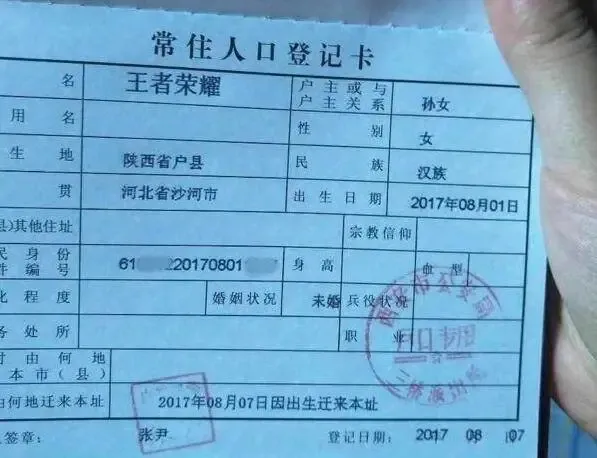 常住人口登记卡
名 王者荣耀 户主或与户主关系 孙女
用名 性别 女
生地 陕西省户县 民族 汉族
贯 河北省沙河市 出生日期 2017年08月01日
县)其他住址 宗教信仰
民身份件编号 61 220170801 身高 血型
化程度 婚姻状况 未婚 兵役状况
务处所 职业
时由何地
本市(县)
由何地迁来本址 2017年08月07日因出生迁来本址
人签章: 张尹 登记日期: 2017 08 07
西安市公安局
户口专用
三桥派出所